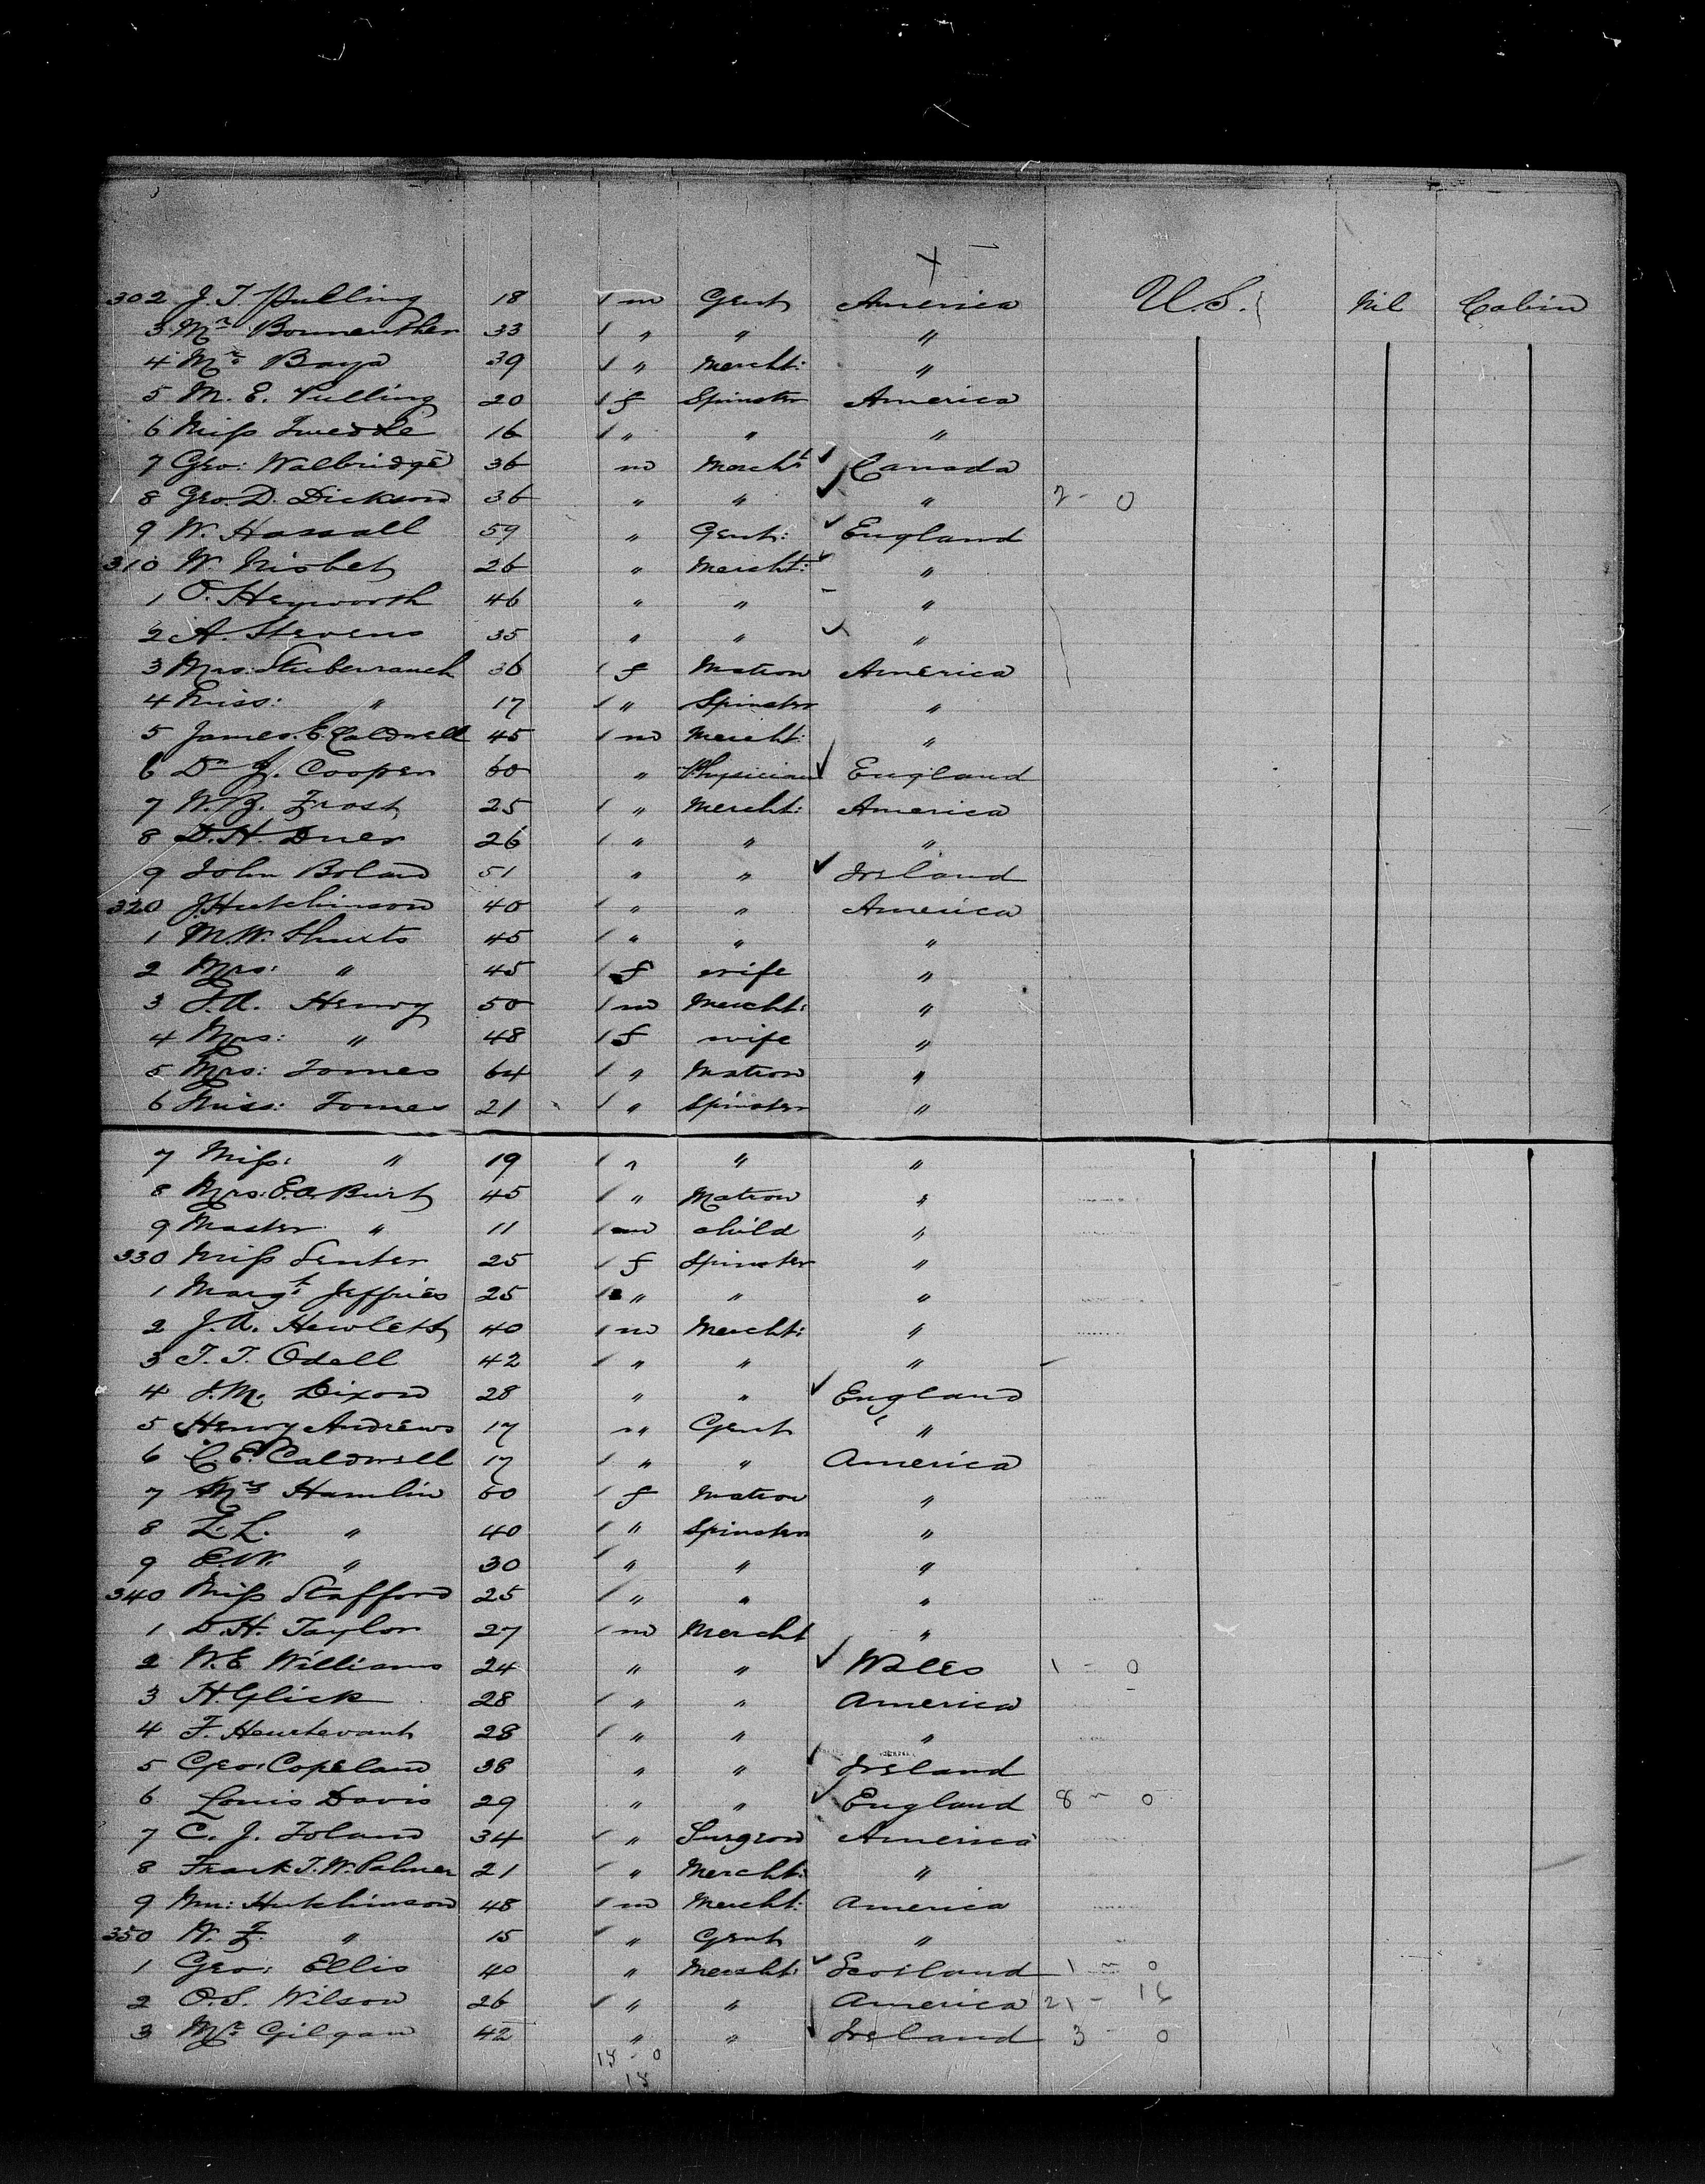 302 J. T. Hulling 18 / m Gent America U.S. Nil Cabin
3 Mr Bonneuther 33 / " " "
4 Mr Baya 39 / " Mercht: "
5 M. E. 20 / f Spinster America
6 Miss Tweddle 16 / " " "
7 Geo: Walbridge 36 m Mercht ✓ Canada
8 Geo. D. Dickson 36 " " ✓ " 2 - 0
9 W. Hassall 59 " Gent: ✓ England
310 W. Nisbet 26 " Mercht: ✓ "
1 O. Heyworth 46 " " - "
2 A. Stevens 35 " " ✓ "
3 Mrs: Stuberrauch 36 / f Matron America
4 Miss: " 17 / " Spinster "
5 James. E. Caldwell 45 / m Mercht: "
6 Dr J. Cooper 60 " Physician ✓ England
7 W. B. Frost 25 / " Mercht: America
8 D. H. Duer 26 / " " "
9 John Boland 51 " " ✓ Ireland
320 J. Hutchinson 40 / " " America
1 M. W. Shurts 45 / " " "
2 Mrs: " 45 / f wife "
3 J. A. Henry 50 / m Mercht: "
4 Mrs: " 48 / f wife "
5 Mrs: Tomes 64 / " Matron "
6 Miss: Tomes 21 / " Spinster "
7 Miss: " 19 / " " "
8 Mrs: E. A. Burt 45 / " Matron "
9 Master " 11 / m child "
330 Miss Senter 25 / f Spinster "
1 Margt Jeffries 25 / " " "
2 J. A. Hewlett 40 / m Mercht: "
3 T. T. Odell 42 / " " "
4 J. M. Dixon 28 " " ✓ England
5 Henry Andrews 17 " Gent "
6 C. E. Caldwell 17 / " " America
7 Mrs Hamlin 60 / f Matron "
8 L. L. " 40 / " Spinster "
9 E. W. " 30 / " " "
340 Miss Stafford 25 / " " "
1 D. H. Taylor 27 / m Mercht "
2 W. E. Williams 24 " " ✓ Wales 1 - 0
3 H. Glick 28 / " " America
4 F. Heurtevant 28 / " " "
5 Geo: Copeland 38 " " ✓ Ireland
6 Louis Davis 29 " " ✓ England 8 - 0
7 C. J. Toland 34 / " Surgeon America
8 Frank T. W. Palmer 21 / " Mercht: "
9 Wm: Hutchinson 48 / m Mercht: America
350 W. F. " 15 / " Gent "
1 Geo: Ellis 40 " Mercht: ✓ Scotland 1 - 0
2 O. S. Wilson 26 / " " America 21 - 16
3 Mr Gilgan 42 " " ✓ Ireland 3 - 0
18 - 0
18